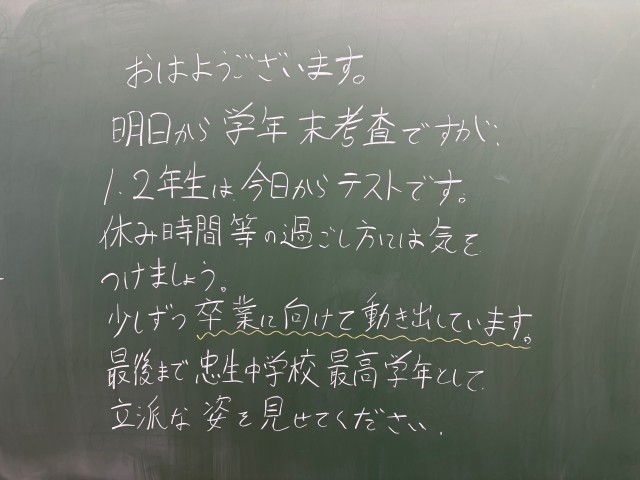 おはようございます。
明日から学年末考査ですが、
1.2年生は、今日からテストです。
休み時間等の過ごし方には気を
つけましょう。
少しずつ卒業に向けて動き出しています。
最後まで忠生中学校最高学年として
立派な姿を見せてください.